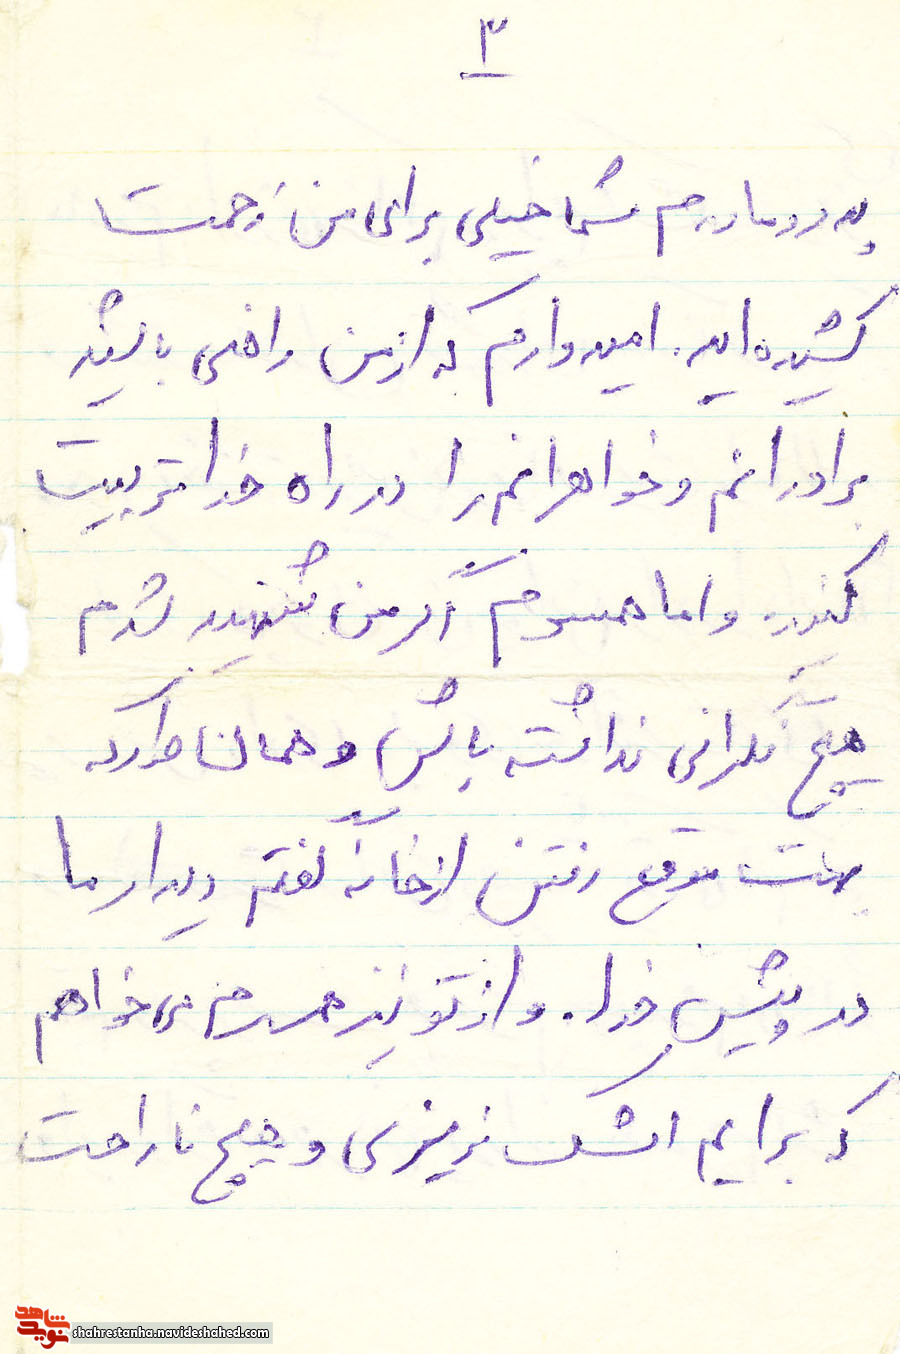 ۳
پدر و مادرم شما خیلی برای من زحمت
کشیده اید. امیدوارم که از من راضی باشید
برادرانم و خواهرانم را در راه خدا تربیت
کنید. و اما همسرم اگر من شهید شدم
هیچ نگرانی نداشته باش و همان طور که
بهت موقع رفتن از خانه گفتم دیدار ما
در پیش خدا. و از تو نیز همسرم می خواهم
که برایم اشک نریزی و هیچ ناراحت
شاهد
نوید
shahrestanha.navideshahed.com